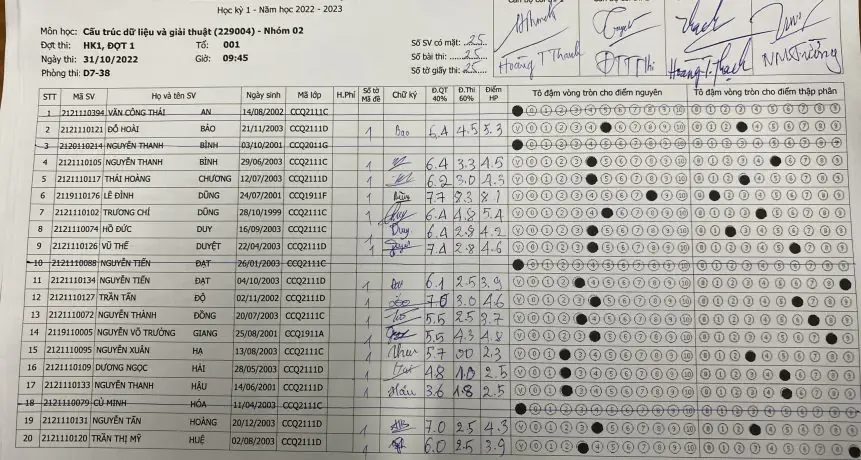 Học kỳ 1 - Năm học 2022 - 2023
Môn học: Cấu trúc dữ liệu và giải thuật (229004) - Nhóm 02
Đợt thi: HK1, ĐỢT 1 Tổ: 001
Ngày thi: 31/10/2022 Giờ: 09:45
Phòng thi: D7-38
Số SV có mặt: 25
Số bài thi: 25
Số tờ giấy thi: 25
Hoàng T Thanh ĐTT Thi Hoàng T. Thạch NM Trường
STT Mã SV Họ và tên SV Ngày sinh Mã lớp H.Phí Số tờ Mã đề Chữ ký Đ.QT 40% Đ.Thi 60% Điểm HP Tô đậm vòng tròn cho điểm nguyên Tô đậm vòng tròn cho điểm thập phân
1 2121110394 VĂN CÔNG THÁI AN 14/08/2002 CCQ2111C
2 2121110121 ĐỖ HOÀI BẢO 21/11/2003 CCQ2111D 1 Bao 6.4 4.5 5.3
3 2120110214 NGUYỄN THANH BÌNH 03/10/2001 CCQ2011G
4 2121110105 NGUYỄN THANH BÌNH 29/06/2003 CCQ2111C 1 6.4 3.3 4.5
5 2121110117 THÁI HOÀNG CHƯƠNG 12/07/2003 CCQ2111D 1 6.2 3.0 4.3
6 2119110176 LÊ ĐÌNH DŨNG 24/07/2001 CCQ1911F 1 7.7 8.3 8.1
7 2121110102 TRƯƠNG CHÍ DŨNG 28/10/1999 CCQ2111C 1 6.4 4.8 5.4
8 2121110074 HỒ ĐỨC DUY 16/09/2003 CCQ2111C 1 Duy 6.4 2.8 4.2
9 2121110126 VŨ THẾ DUYỆT 22/04/2003 CCQ2111D 1 7.4 2.8 4.6
10 2121110088 NGUYỄN TIẾN ĐẠT 26/01/2003 CCQ2111C
11 2121110134 NGUYỄN TIẾN ĐẠT 04/10/2003 CCQ2111D 1 6.1 2.5 3.9
12 2121110127 TRẦN TẤN ĐỘ 02/11/2002 CCQ2111D 1 7.0 3.0 4.6
13 2121110072 NGUYỄN THÀNH ĐỒNG 20/07/2003 CCQ2111C 1 5.5 2.5 3.7
14 2119110005 NGUYỄN VÕ TRƯỜNG GIANG 25/08/2001 CCQ1911A 1 5.5 4.3 4.8
15 2121110095 NGUYỄN XUÂN HẠ 13/08/2003 CCQ2111C 1 5.7 00 2.3
16 2121110109 DƯƠNG NGỌC HẢI 28/05/2003 CCQ2111D 1 Hai 4.8 1.0 2.5
17 2121110133 NGUYỄN THANH HẬU 14/06/2001 CCQ2111D 1 Hậu 3.6 1.8 2.5
18 2121110079 CÙ MINH HÓA 11/04/2003 CCQ2111C
19 2121110131 NGUYỄN TẤN HOÀNG 20/12/2003 CCQ2111D 1 7.0 2.5 4.3
20 2121110120 TRẦN THỊ MỸ HUỆ 02/08/2003 CCQ2111D 1 6.0 2.5 3.9